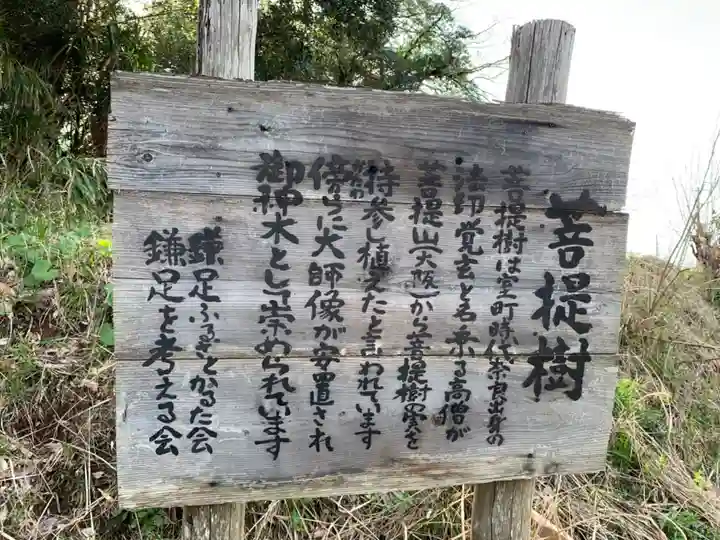 菩提樹
菩提樹は室町時代奈良出身の
法印覚玄と名乗る高僧が
菩提山(大阪)から菩提樹の実を
持参し植えたと言われています
なお
傍らに大師像が安置され
御神木として崇められています
鎌足ふるさとかるた会
鎌足を考える会